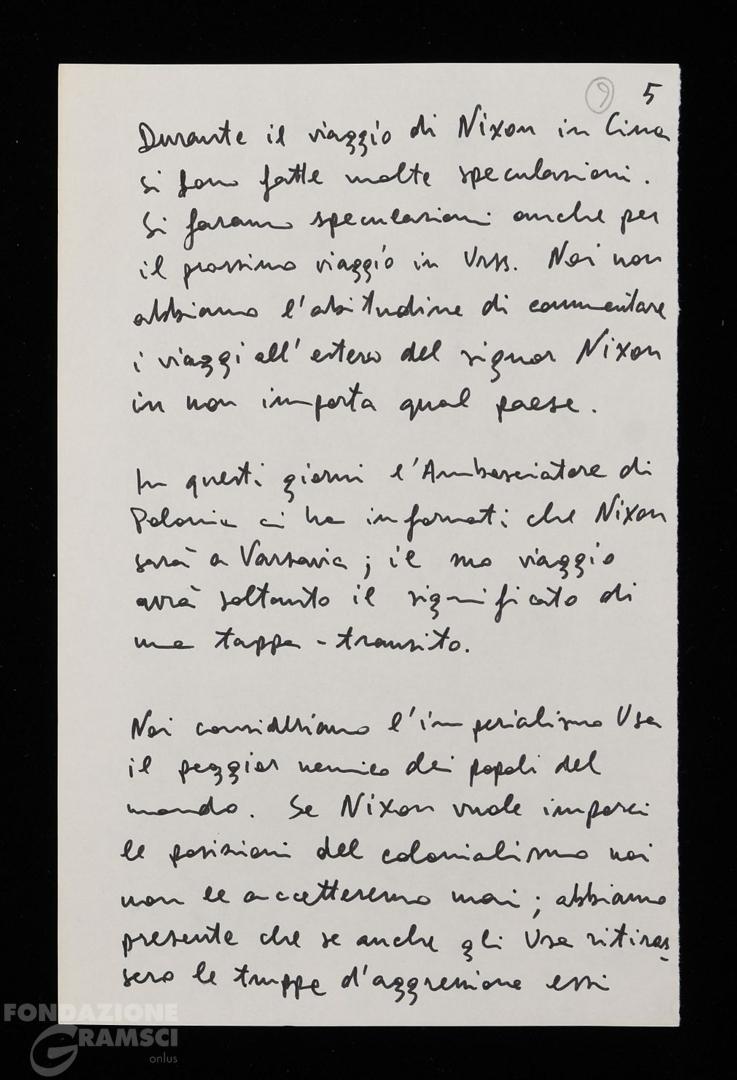 9 5
Durante il viaggio di Nixon in Cina
si sono fatte molte speculazioni.
Si faranno speculazioni anche per
il prossimo viaggio in Urss. Noi non
abbiamo l'abitudine di commentare
i viaggi all'estero del signor Nixon
in non importa qual paese.
In questi giorni l'Ambasciatore di
Polonia ci ha informati che Nixon
sarà a Varsavia; il suo viaggio
avrà soltanto il significato di
una tappa-transito.
Noi consideriamo l'imperialismo Usa
il peggior nemico dei popoli del
mondo. Se Nixon vuole imporci
le posizioni del colonialismo noi
non le accetteremo mai; abbiamo
presente che se anche gli Usa ritiras
sero le truppe d'aggressione essi
FONDAZIONE
GRAMSCI
onlus